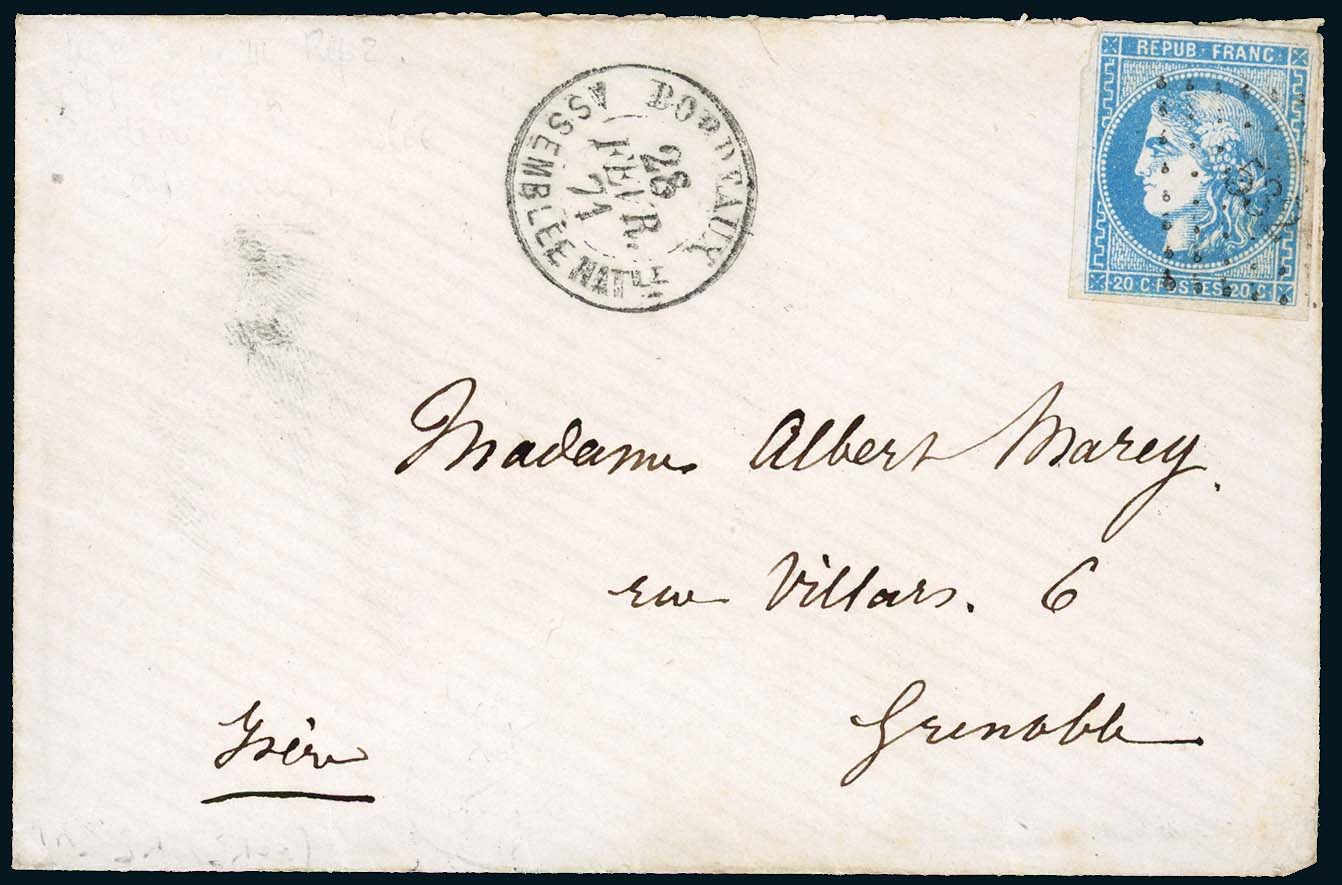 REPUB · FRANC
BORDEAUX
28
FEVR.
71
ASSEMBLÉE NATLE
20 C · POSTES · 20 C
Madame Albert Marey.
rue Villars. 6
Grenoble
Isère